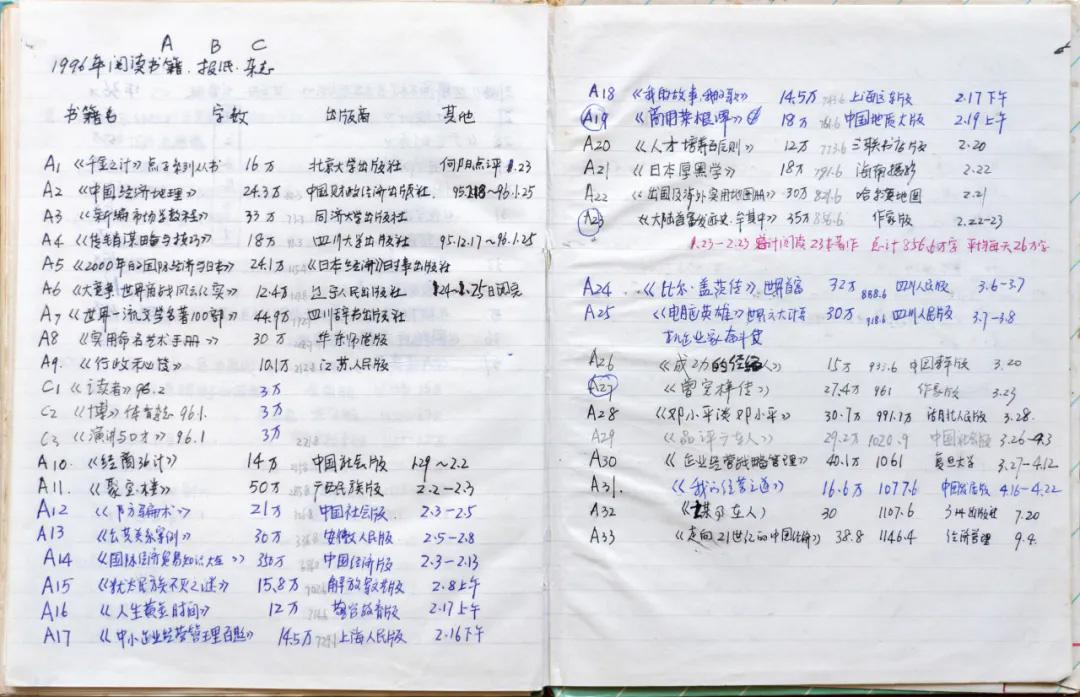 A B C
1996年阅读书籍、报纸、杂志
书籍名 字数 出版商 其他
A1 《千金之计》点子系列丛书 16万 北京大学出版社 何阳点评 1.23
A2 《中国经济地理》 24.3万 中国财政经济出版社 95.12.18～96.1.25
A3 《新编市场学教程》 33万 同济大学出版社
A4 《传销谋略与技巧》 18万 四川大学出版社 95.12.17～96.1.25
A5 《2000年的国际经济与日本》 24.1万 《日本经济》出版社
A6 《大竞争 世界商战风云纪实》 12.4万 辽宁人民出版社 1.24～1.25日阅完
A7 《世界一流文学名著100部》 44.9万 四川辞书出版社
A8 《实用命名艺术手册》 30万 华东师范版
A9 《行政秘诀》 10.1万 江苏人民版
C1 《读者》96.2 3万
C2 《博》体育志 96.1. 3万
C3 《演讲与口才》96.1 3万
A10. 《经商36计》 14万 中国社会版 1.29～2.2
A11. 《聚宝楼》 50万 广西民族版 2.2-2.3
A12 《防骗术》 21万 中国社会版 2.3-2.5
A13 《公共关系案例》 30万 安徽人民版 2.5-2.8
A14 《国际经济贸易知识大全》 350万 中国经济版 2.3-2.13
A15 《犹太民族不灭之谜》 15.8万 解放军文艺版 2.8上午
A16 《人生黄金时间》 12万 版 2.17上午
A17 《中小企业经营管理百题》 14.5万 上海人民版 2.16下午
A18 《我的故事，我的歌》 14.5万 上海远东版 2.17下午
A19 《商用菜根谭》 18万 中国地质大版 2.19上午
A20 《人才培养百则》 12万 773.6 三联书店版 2.20
A21 《日本厚黑学》 18万 791.6 海南摄影 2.22
A22 《出国及涉外实用地图册》 30万 821.6 哈尔滨地图 2.21
A23 《大陆首富发迹史.牟其中》 35万 856.6 作家版 2.22-23
1.23-2.23 总计阅读23本著作 总计856.6万字 平均每天26万字
A24 《比尔·盖茨传》世界首富 32万 888.6 四川人民版 3.6-3.7
A25 《电脑英雄》世界六大计算 30万 918.6 四川人民版 3.7-3.8
机企业家奋斗史
A26 《成功的经纪人》 15万 933.6 中国 版 3.20
A27 《曾宪梓传》 27.4万 961 作家版 3.23
A28 《邓小平谈邓小平》 30.7万 991.7万 湖北人民版 3.28.
A29 《品评 在人》 29.2万 1020.9 中国社会版 3.26-4.3
A30 《企业经营战略管理》 40.1万 1061 复旦大学 3.27-4.12
A31. 《我的经营之道》 16.6万 1077.6 中国 版 4.16-4.22
A32 《谋事在人》 30 1107.6 出版社 7.20
A33 《走向21世纪的中国经济》 38.8 1146.4 经济管理 9.4.